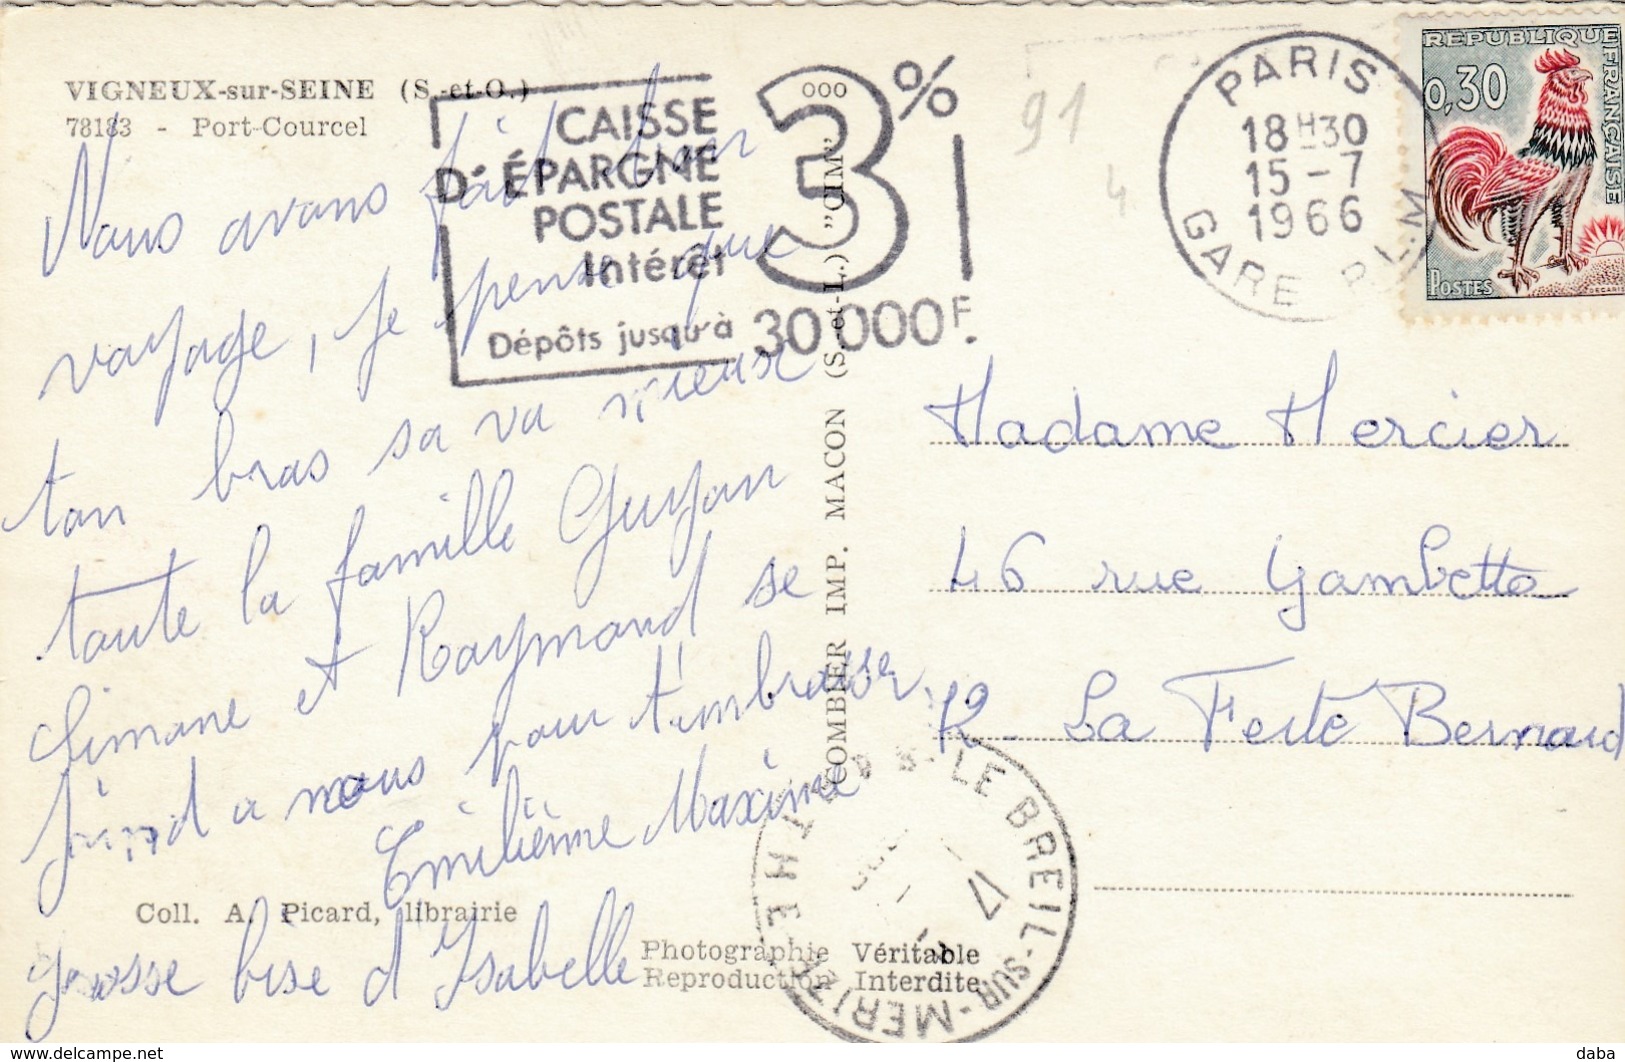 VIGNEUX-sur-SEINE (S.-et-O.)
78183 - Port-Courcel
CAISSE
D'ÉPARGNE
POSTALE
Intérêt
3%
000
Dépôts jusqu'à 30 000F.
91
4
PARIS
18H30
15-7
1966
GARE P.L.M
REPUBLIQUE FRANÇAISE
0,30
POSTES
DECARIS
Nous avons fait bon
voyage, je pense que
ton bras sa va mieux
toute la famille Guyon
Simone et Raymond se
joind a nous pour t'embrasser
Emilienne Maxime
grosse bise d'Isabelle
COMBIER IMP. MACON (S.-et-L.) "CIM"
Madame Mercier
46 rue Gambetta
72 - La Ferté Bernard
LE BREIL-SUR-MERIZE
SARTHE
17
Coll. A. Picard, librairie
Photographie Véritable
Reproduction Interdite
www.delcampe.net
daba